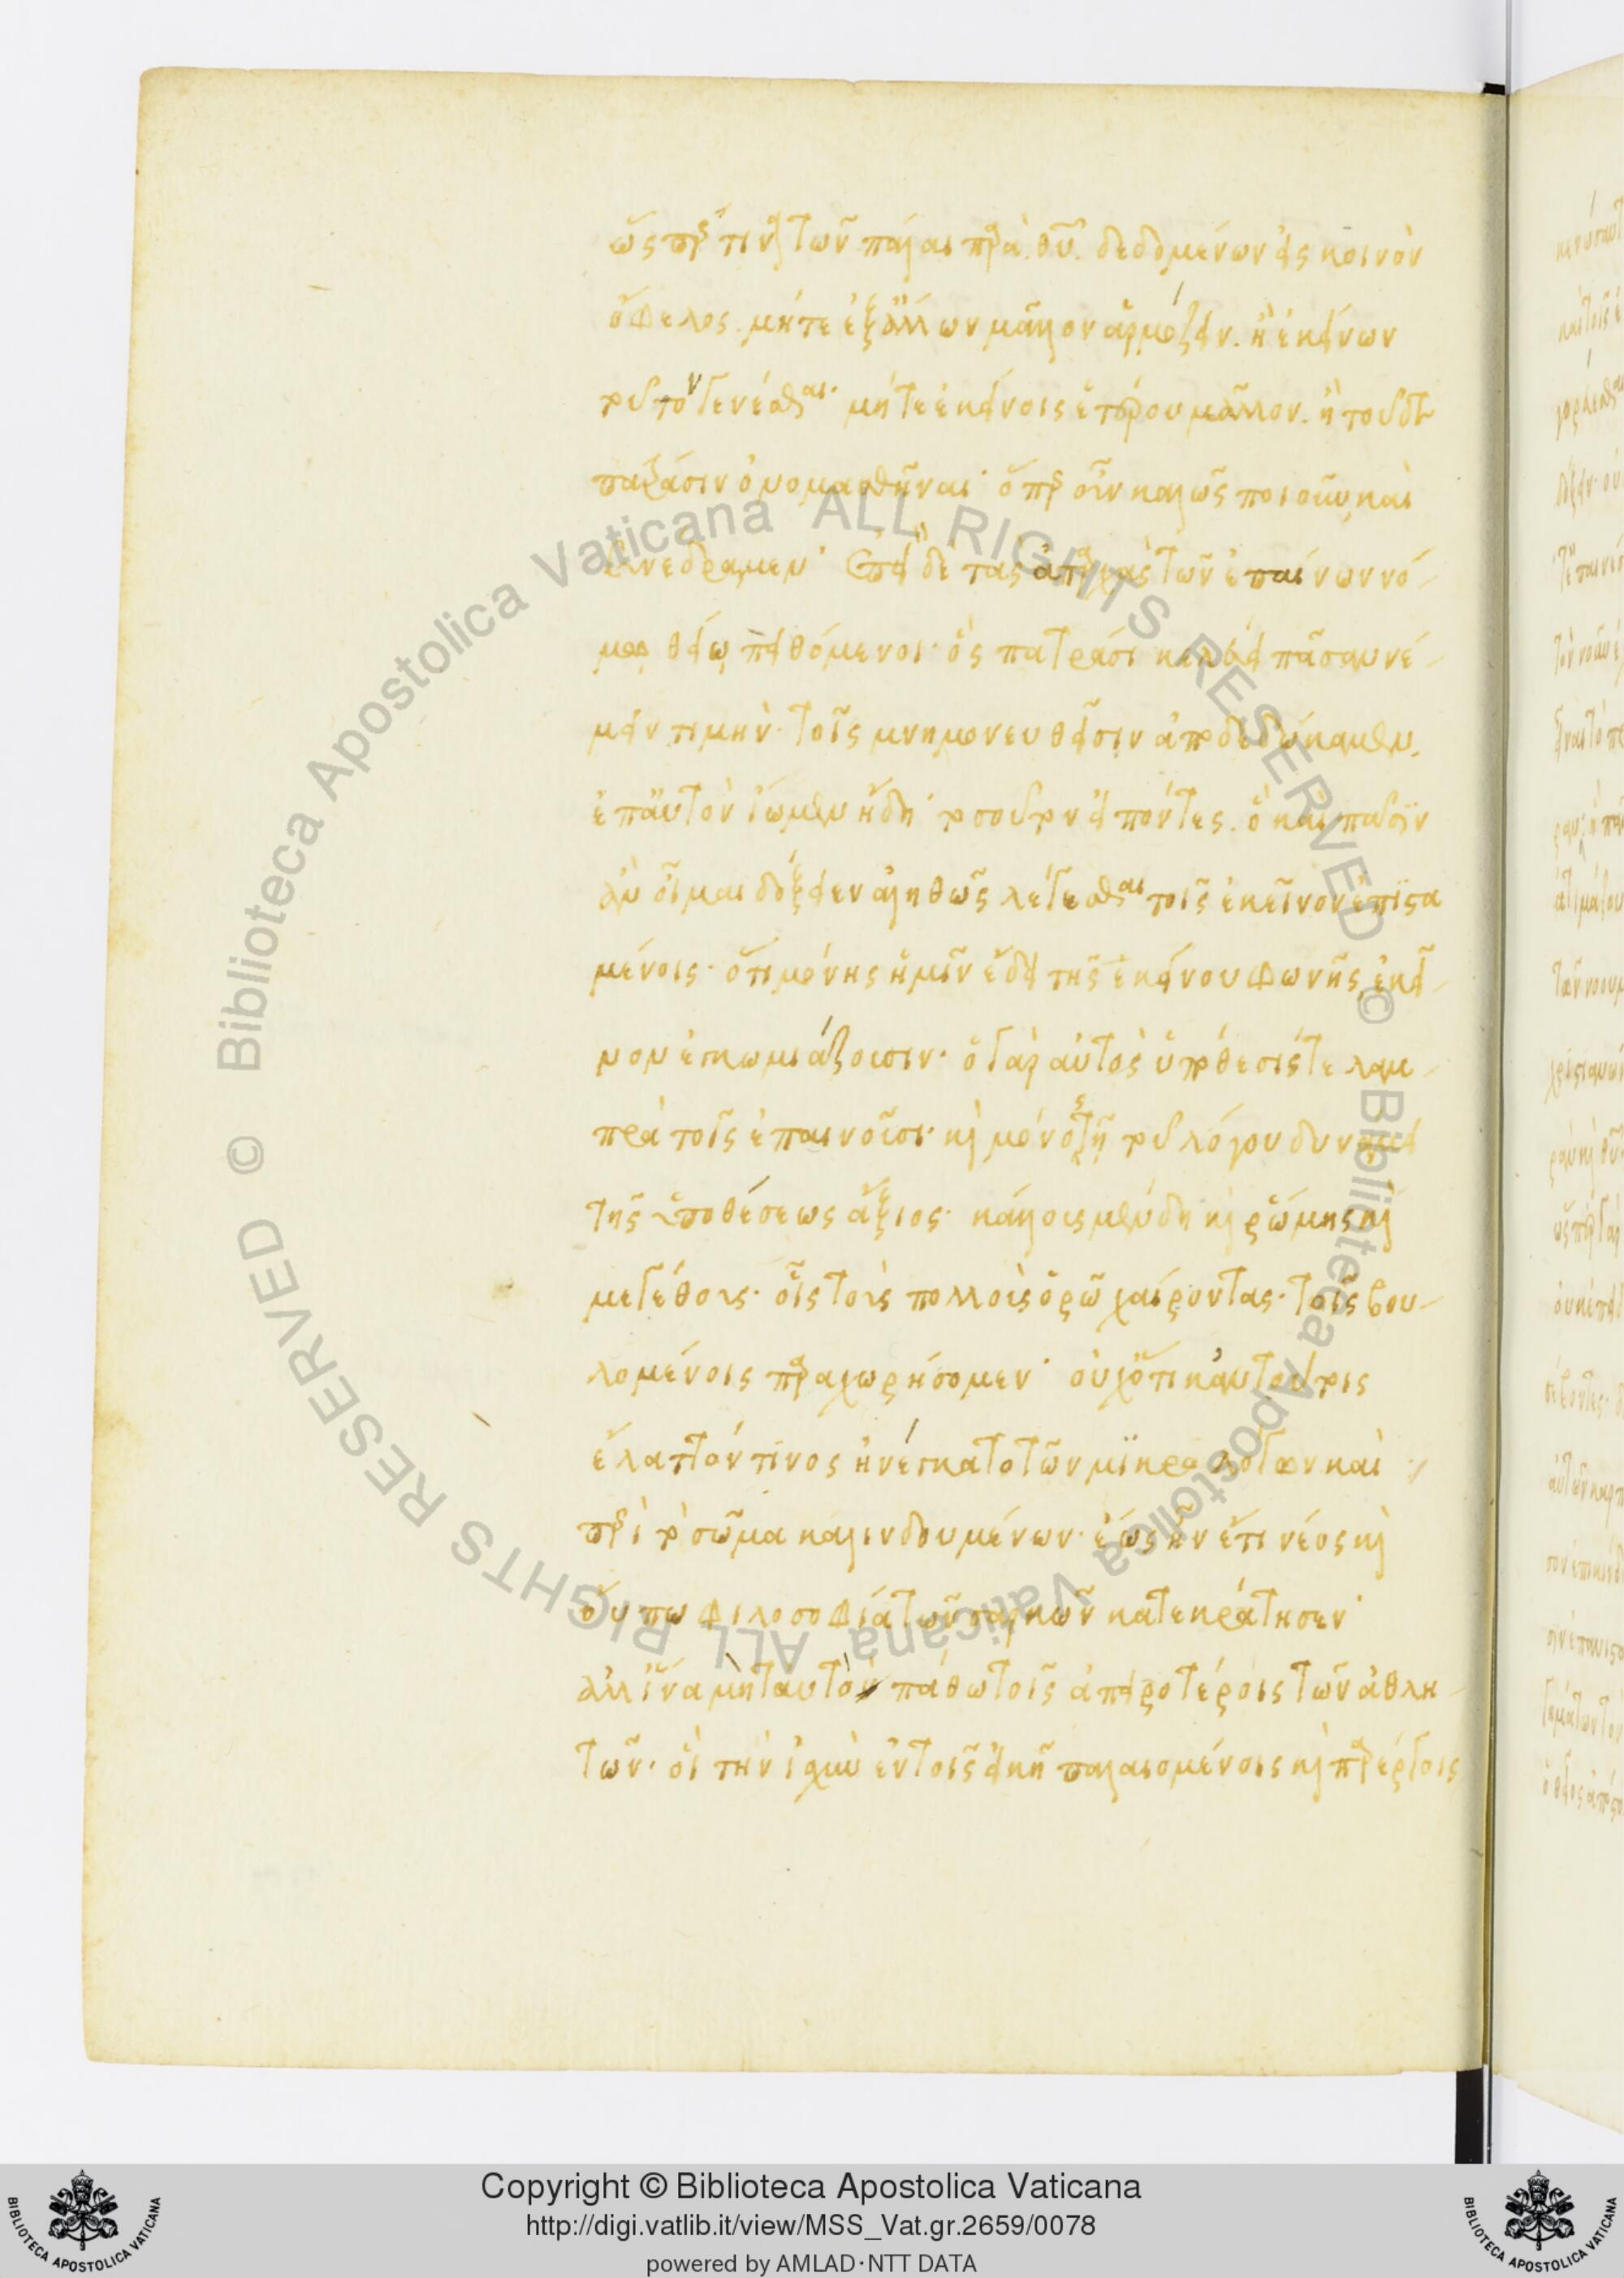 ὥσπερ τινὰ τῶν πάλαι παρὰ θυ δεδομένων εἰς κοινὸν
ὄφελος. μήτε ἐξ ἄλλων μᾶλλον ἁρμόζειν. ἢ ἐκείνων
τοῦτον γενέσθαι· μήτε ἐκείνοις ἑτέρου μᾶλλον. ἢ τοῦδε
πατράσιν ὀνομασθῆναι· ὅπερ οὖν καλῶς ποιοῦν καὶ
συνέδραμεν· ἐπεὶ δὲ τὰς ἀπαρχὰς τῶν ἐπαίνων νό-
μῳ θείῳ πειθόμενοι· ὃς πατράσι κελεύει πᾶσαν νέ-
μειν τιμὴν· τοῖς μνημονευθεῖσιν ἀποδεδώκαμεν.
ἐπ αὐτὸν ἴωμεν ἤδη· τοσοῦτον εἰπόντες. ὃ καὶ πᾶσιν
ἂν οἶμαι δόξειεν ἀληθῶς λέγεσθαι τοῖς ἐκεῖνον ἐπιστα
μένοις· ὅτι μόνης ἡμῖν ἔδει τῆς ἐκείνου φωνῆς, ἐκεῖ-
νον ἐγκωμιάζουσιν· ὁ γὰρ αὐτὸς ὑπόθεσίς τε λαμ-
πρὰ τοῖς ἐπαινοῦσι· κ μόνος τῇ τοῦ λόγου δυνάμει
τῆς ὑποθέσεως ἄξιος· κάλλους μὲν δὴ κ ῥώμης κ
μεγέθους· οἷς τοὺς πολλοὺς ὁρῶ χαίροντας· τοῖς βου-
λομένοις παραχωρήσομεν· οὐχ ὅτι κἀν τούτοις
ἔλαττόν τινος ἠνέγκατο τῶν μικρολόγων καὶ
περὶ τὸ σῶμα καλινδουμένων· ἕως ἦν ἔτι νέος κ
οὔπω φιλοσοφίᾳ τῶν σαρκῶν κατεκράτησεν·
ἀλλ ἵνα μὴ ταυτὸν πάθω τοῖς ἀπειροτέροις τῶν ἀθλη-
τῶν· οἳ τὴν ἰσχὺν ἐν τοῖς εἰκῆ παλαισμένοις κ παρέργοις
Copyright © Biblioteca Apostolica Vaticana
http://digi.vatlib.it/view/MSS_Vat.gr.2659/0078
powered by AMLAD·NTT DATA
© Biblioteca Apostolica Vaticana ALL RIGHTS RESERVED
© Biblioteca Apostolica Vaticana ALL RIGHTS RESERVED
BIBLIOTECA APOSTOLICA VATICANA
BIBLIOTECA APOSTOLICA VATICANA